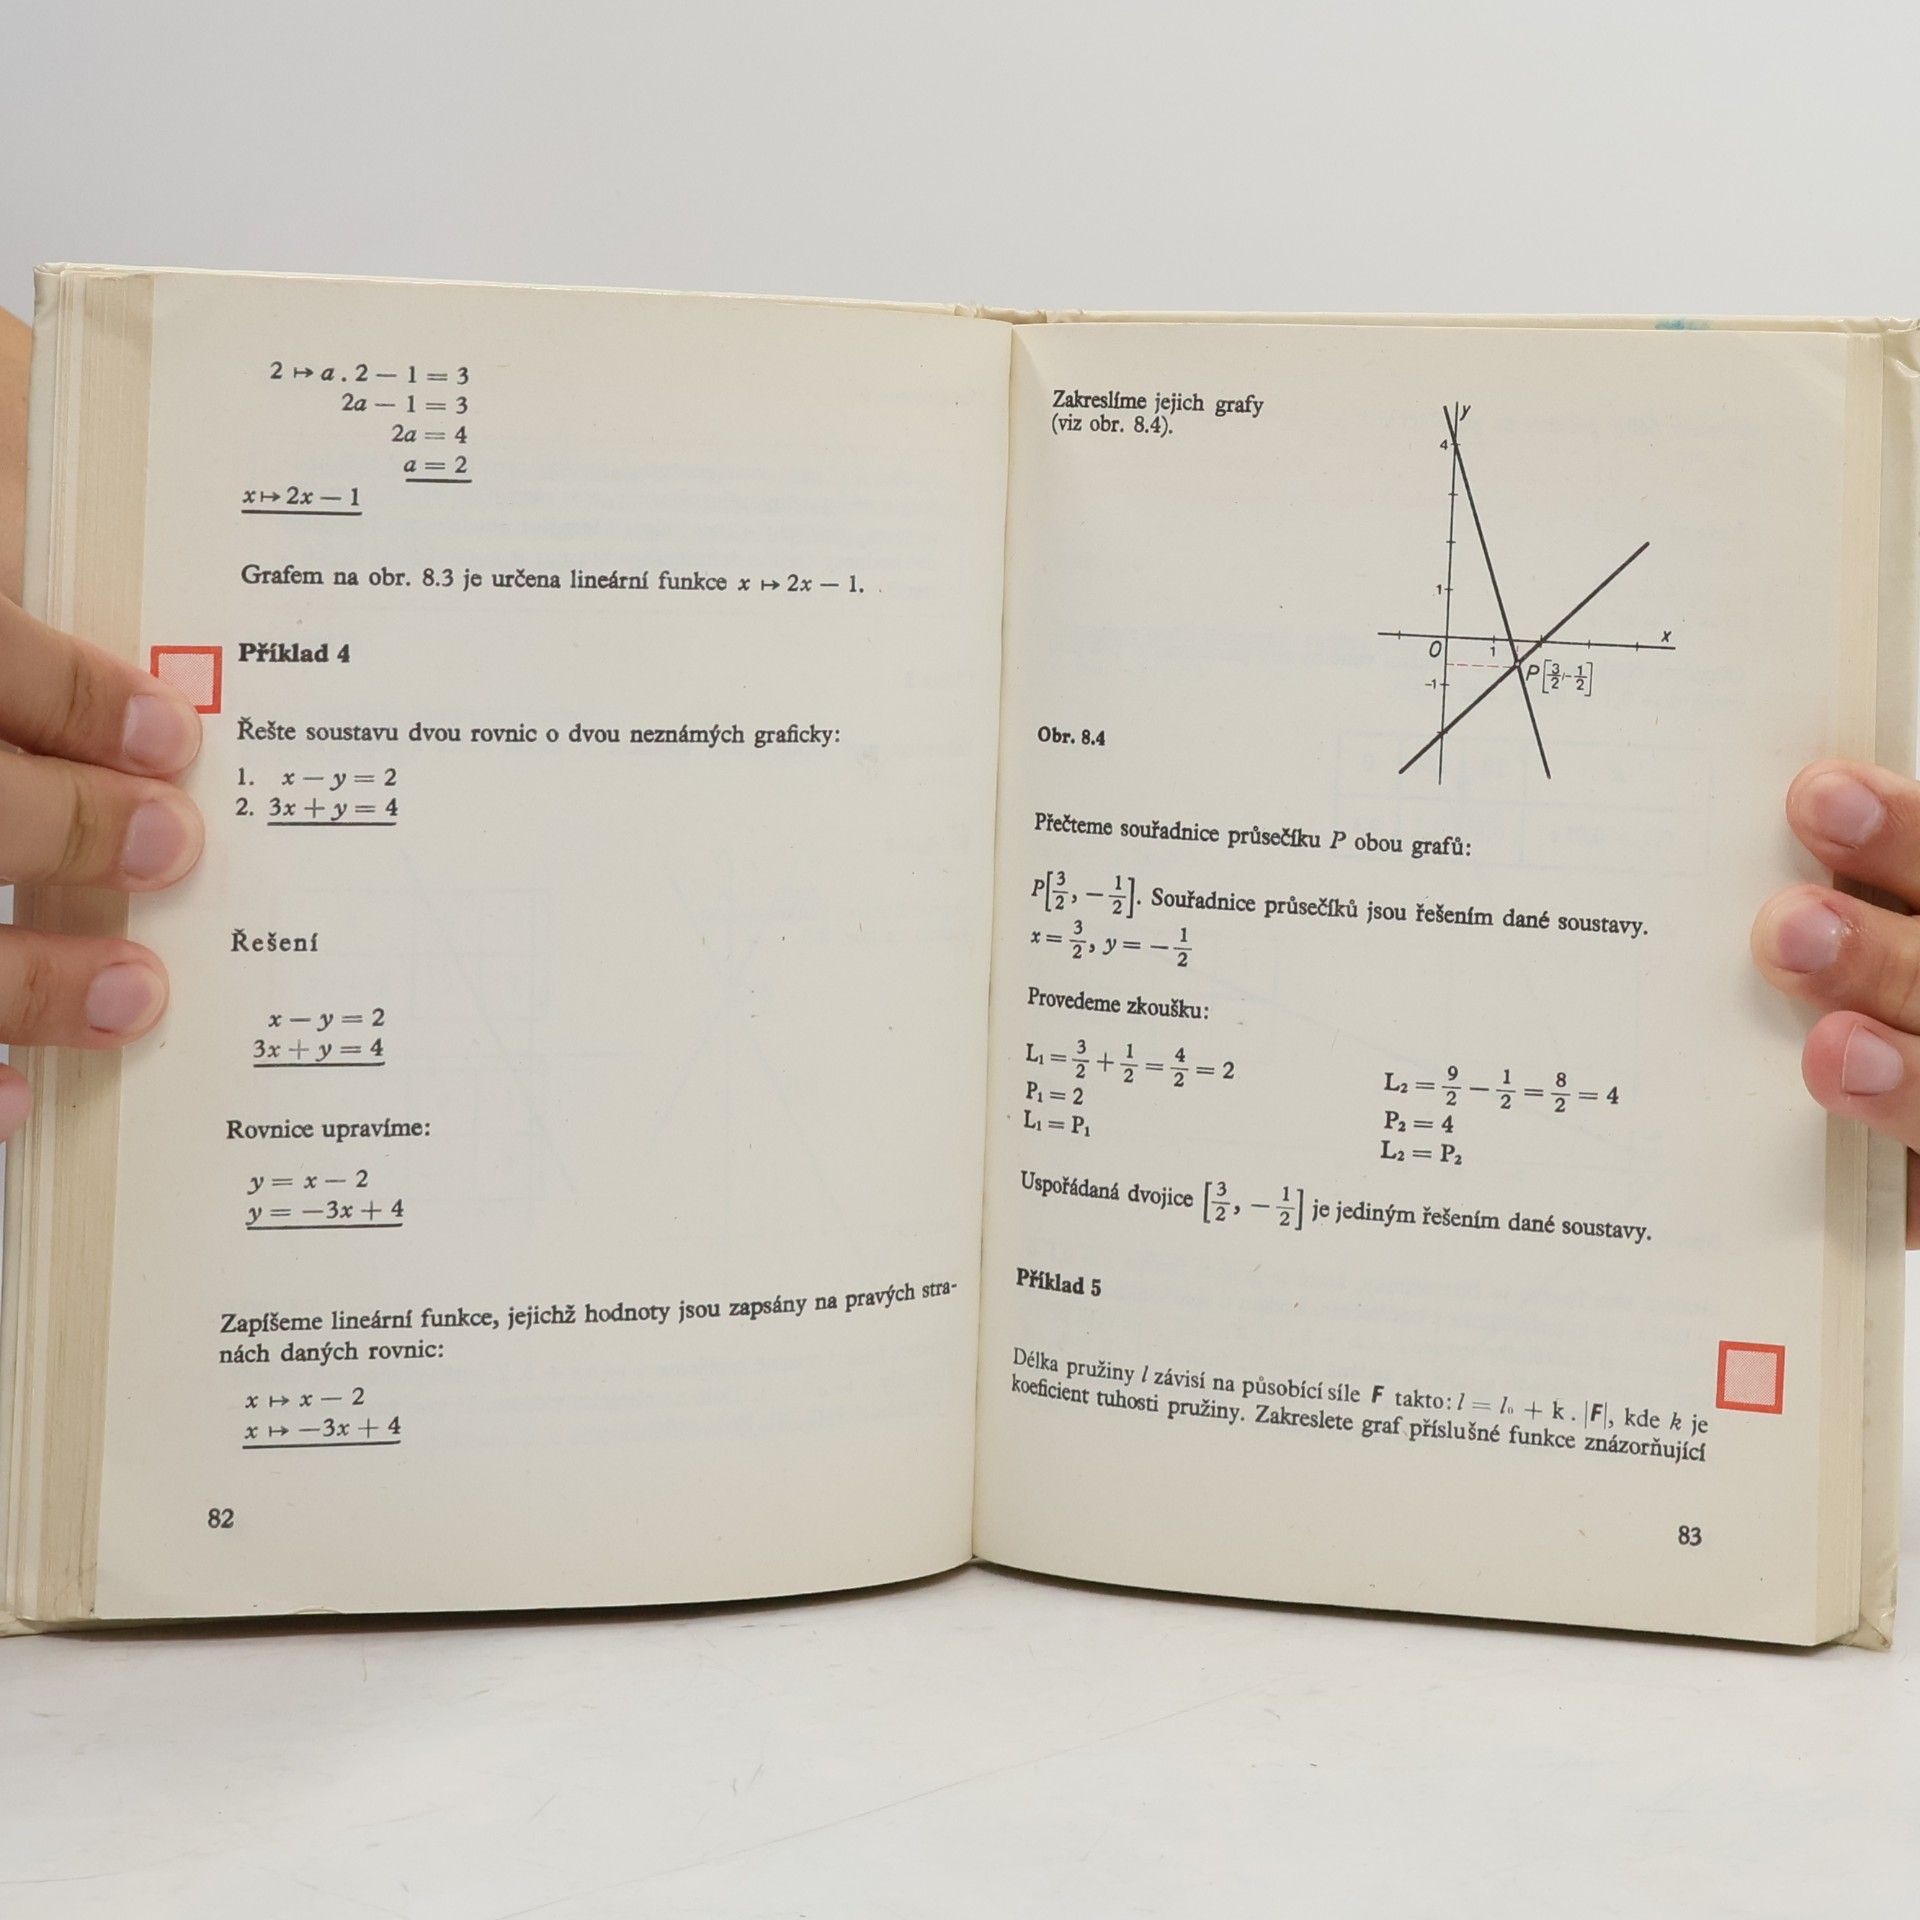 2 ↦ a . 2 — 1 = 3
2a — 1 = 3
2a = 4
a = 2
x ↦ 2x — 1
Grafem na obr. 8.3 je určena lineární funkce x ↦ 2x — 1.
Příklad 4
Řešte soustavu dvou rovnic o dvou neznámých graficky:
1. x — y = 2
2. 3x + y = 4
Řešení
x — y = 2
3x + y = 4
Rovnice upravíme:
y = x — 2
y = —3x + 4
Zapíšeme lineární funkce, jejichž hodnoty jsou zapsány na pravých stra-
nách daných rovnic:
x ↦ x — 2
x ↦ —3x + 4
82
Zakreslíme jejich grafy
(viz obr. 8.4).
y
4
1
x
O
1
-1
P[3/2,-1/2]
Obr. 8.4
Přečteme souřadnice průsečíku P obou grafů:
P[3/2, —1/2]. Souřadnice průsečíků jsou řešením dané soustavy.
x = 3/2, y = —1/2
Provedeme zkoušku:
L₁ = 3/2 + 1/2 = 4/2 = 2
P₁ = 2
L₁ = P₁
L₂ = 9/2 — 1/2 = 8/2 = 4
P₂ = 4
L₂ = P₂
Uspořádaná dvojice [3/2, —1/2] je jediným řešením dané soustavy.
Příklad 5
Délka pružiny l závisí na působící síle F takto: l = l₀ + k . |F|, kde k je
koeficient tuhosti pružiny. Zakreslete graf příslušné funkce znázorňující
83